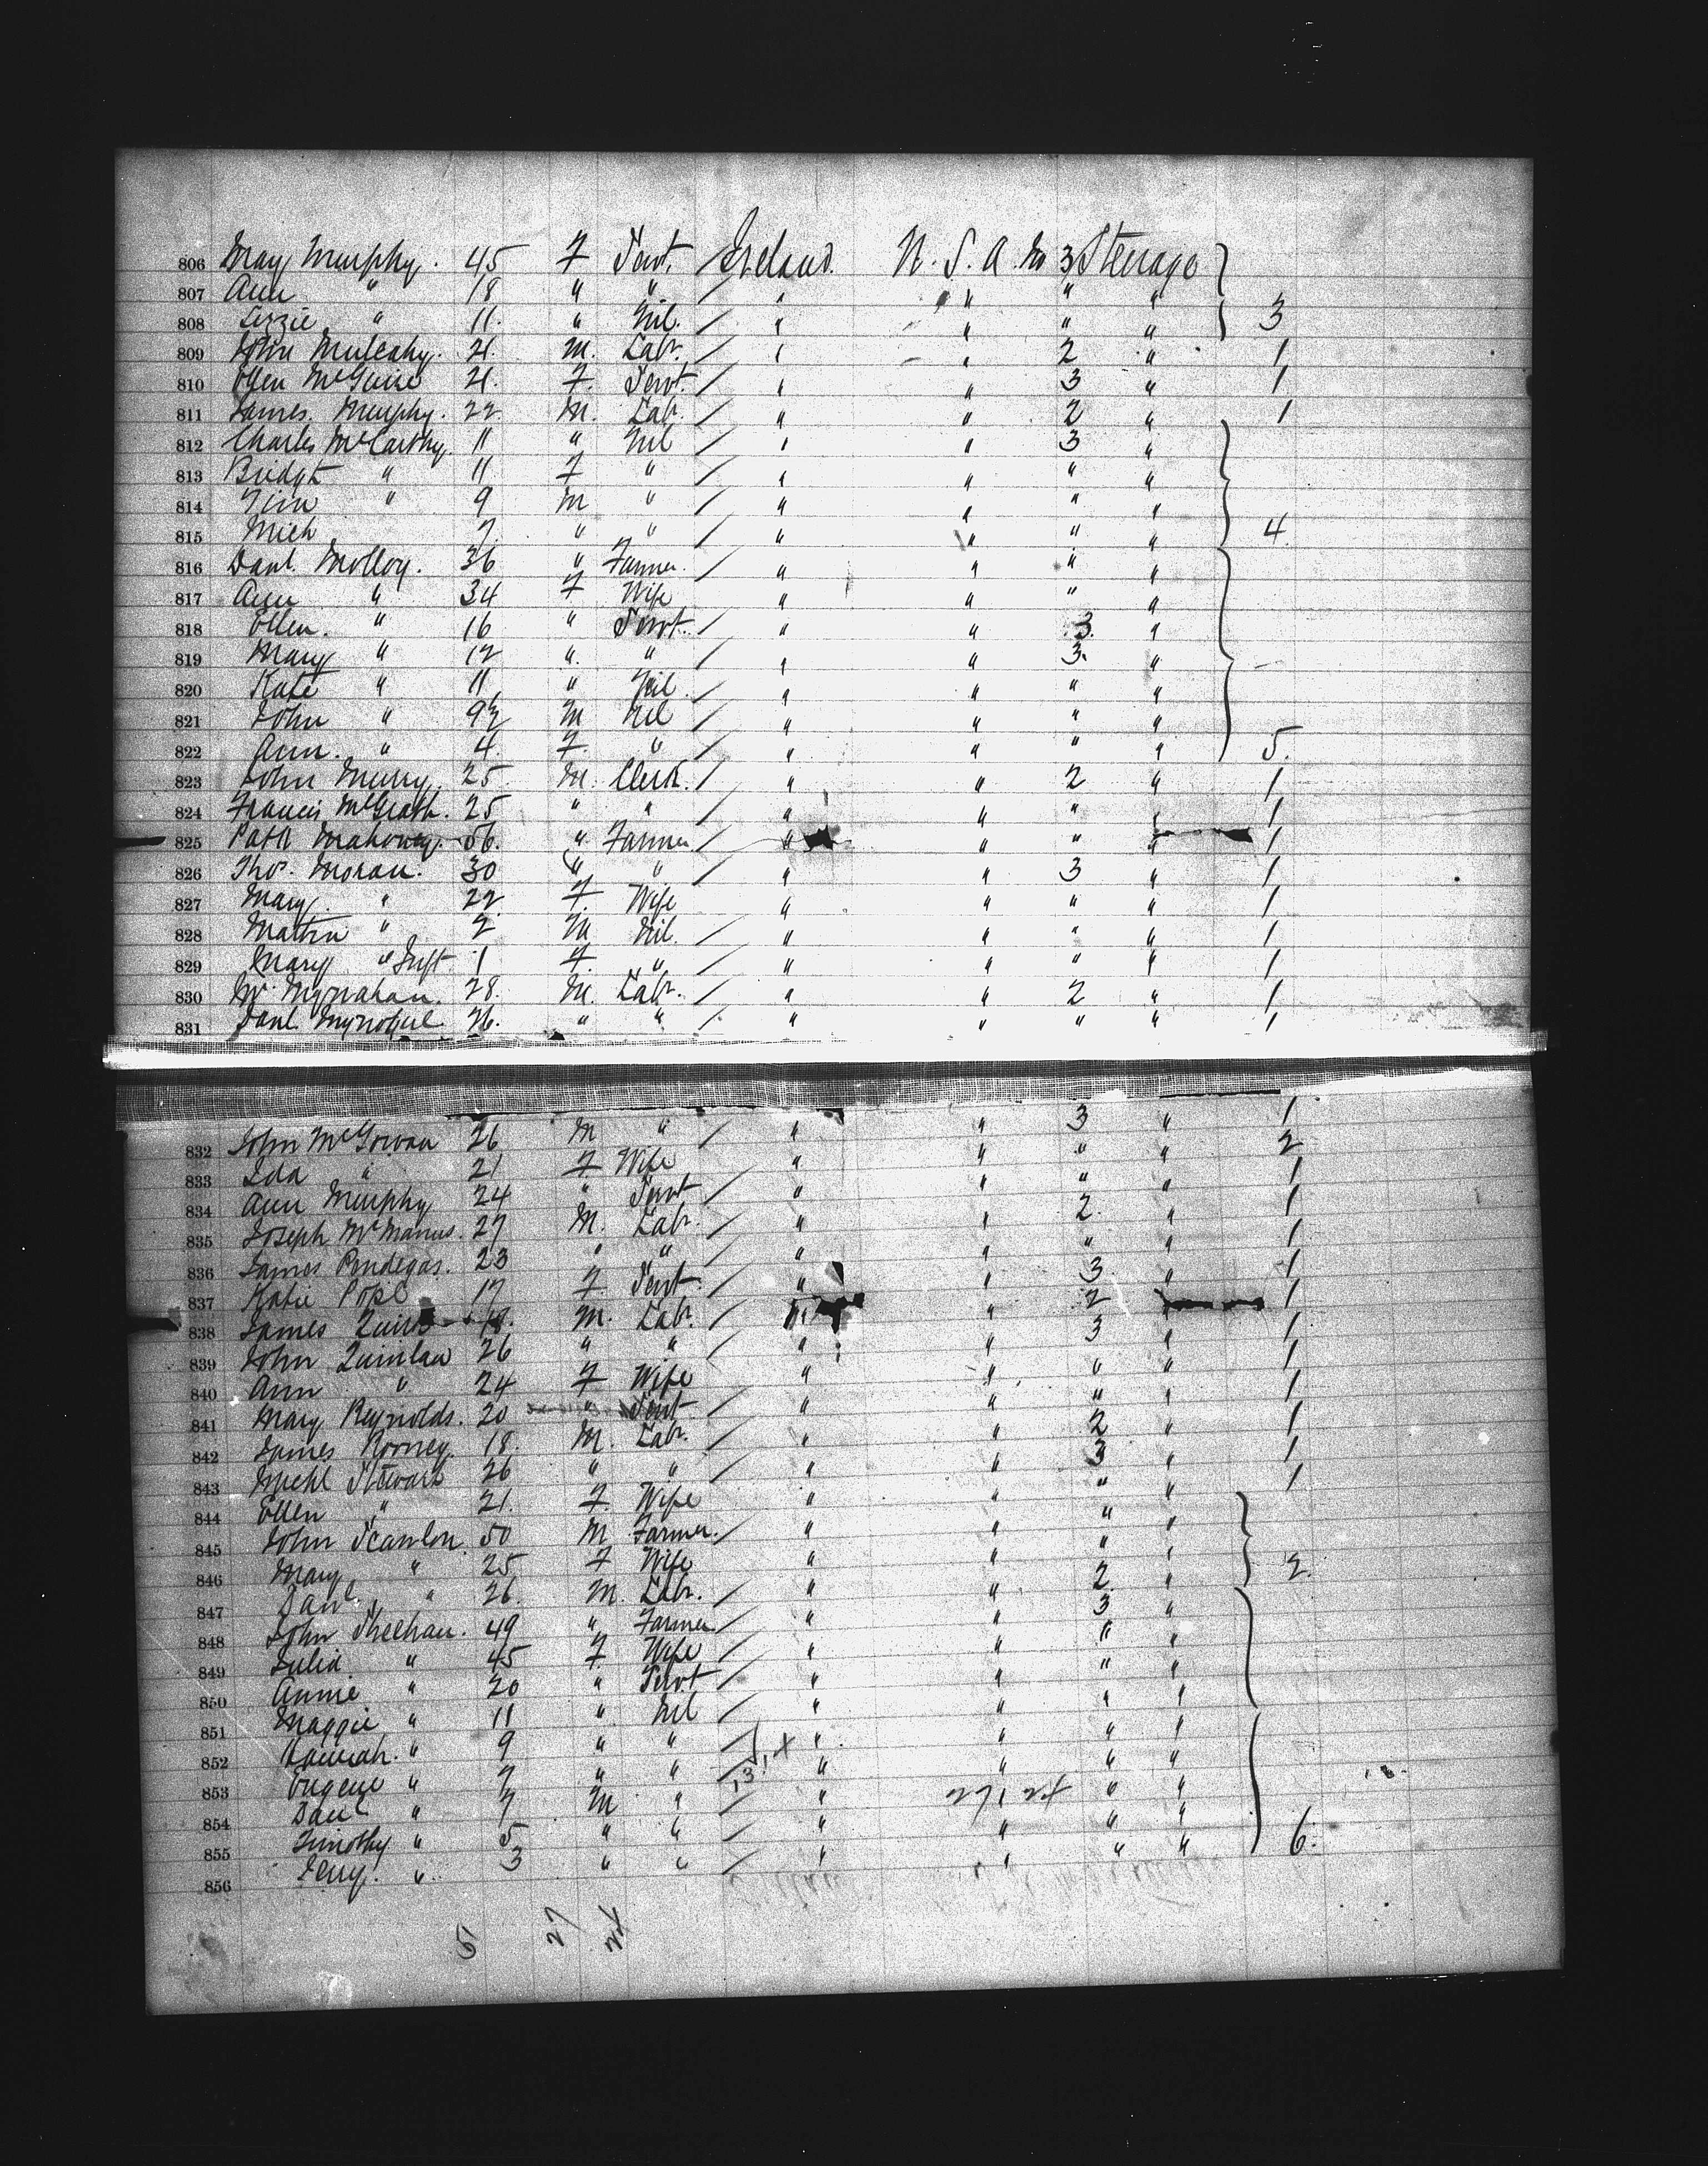 806 Mary Murphy. 45 F Servt. / Ireland. U. S. A. 3 Steerage
807 Ann " 18 " " / " " " "
808 Lizzie " 11. " Nil. / " " " " 3
809 John Mulcahy. 21. M. Labr. / " " 2 " 1
810 Ellen McGuire 21. F. Servt. / " " 3 " 1
811 James. Murphy. 22 M. Lab. / " " 2 " 1
812 Charles McCarthy. 11 " Nil / " " 3 "
813 Bridgt " 11 F " / " " " "
814 Tim " 9 M " / " " " "
815 Mich 7. " " / " " " " 4.
816 Danl. Molloy. 36 " Farmer. / " " " "
817 Ann " 34 F Wife " " " "
818 Ellen. " 16 " Servt. / " " 3. "
819 Mary " 12 ". " / " " 3. "
820 Kate " 11 " Nil. / " " " "
821 John " 9½ M Nil / " " " "
822 Ann. " 4. F. " / " " " " 5.
823 John Murry. 25. M. Clerk. / " " 2 " 1
824 Francis McGrath. 25 " " / " " " " 1
825 Patk Mahoney. 56. " Farmer / " " " " 1
826 Thos. Moran. 30 " " / " " 3 " 1
827 Mary. " 22 F. Wife " " " " 1
828 " 2 M Nil. / " " " " 1
829 Mary " Inft. 1 F. " / " " " " 1
830 28. M. Labr. / " " 2 " 1
831 Danl. 26. " " / " " " " 1
832 John McGowan 26 M " / " " 3 " 1
833 Ida " 21 F Wife " " " " 2
834 Ann Murphy 24 " Servt / " " " " 1
835 Joseph McManus. 27 M. Labr. / " " 2. " 1
836 James Pendegas. 23 " " / " " " " 1
837 Katie Pope 17 F. Servt. / " " 3. " 1
838 James Quinn 18. M. Labr. / " " 2 " 1
839 John Quinlan 26 " " / " " 3 " 1
840 Ann " 24 F Wife " " " " 1
841 Mary Reynolds. 20 " Servt / " " " " 1
842 James Rooney. 18. M. Labr. / " " 2 " 1
843 Michl Stewart 26 " " / " " 3 " 1
844 Ellen " 21. F. Wife " " " " 1
845 John Scanlon. 50 M Farmer. / " " " "
846 Mary " 25. F Wife " " " " 2.
847 Danl. " 26. M. Labr. / " " 2. "
848 John Sheehan. 49 " Farmer. / " " 3 "
849 Julia. " 45 F. Wife / " " " "
850 Annie " 20 " Servt / " " " "
851 Maggie " 11 " Nil / " " " "
852 Hannah. " 9 " " / " " " "
853 Eugene " 7 " " / " " " "
854 Danl " 7 M " / " 27 1 24 " "
855 Timothy " 5 " " / " " " " 6.
856 Jerry. " 3 " " / " " " "
5 27 24